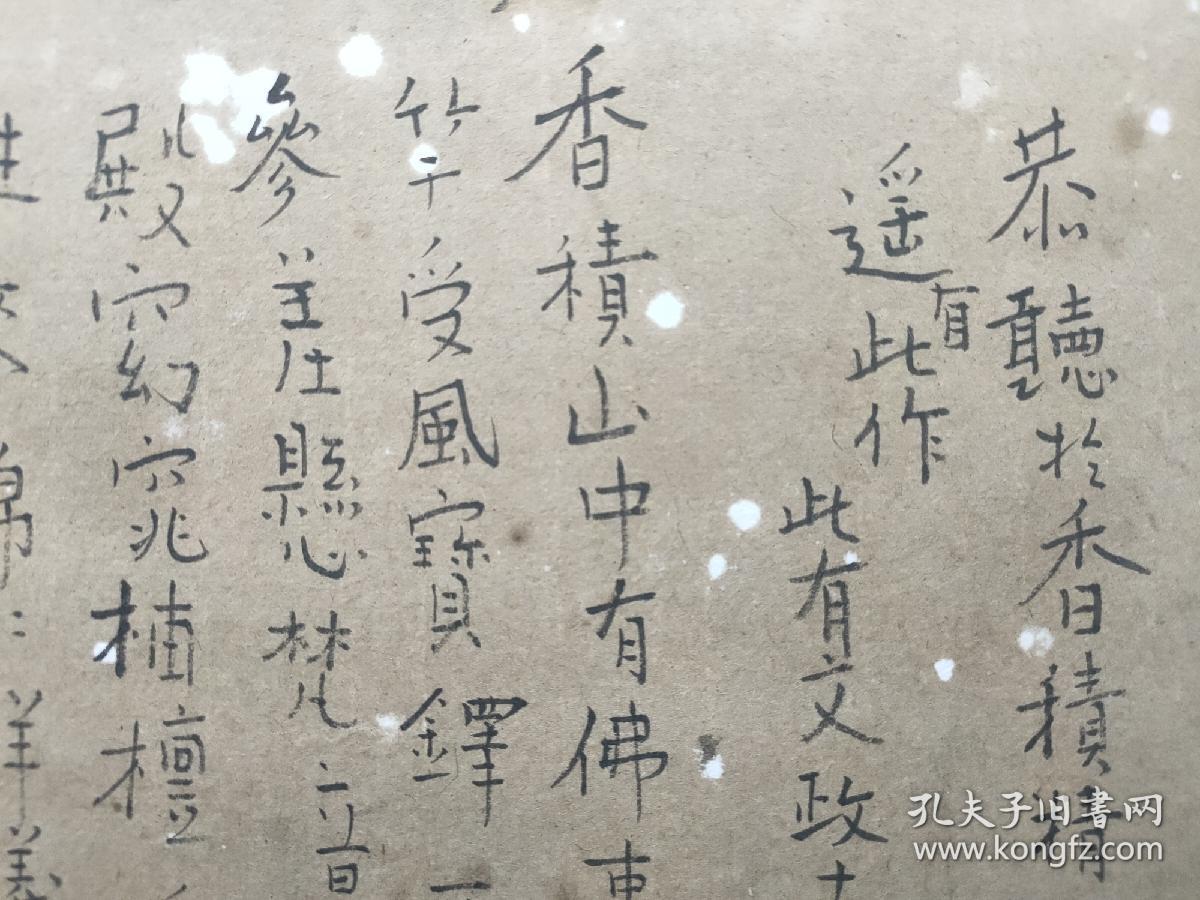 恭聽於香積精
遥有此作
此有文政十
香積山中有佛
竿受風寶鐸
參差压懸梵音
殿窈窕楠檀
孔夫子旧書网
www.kongfz.com